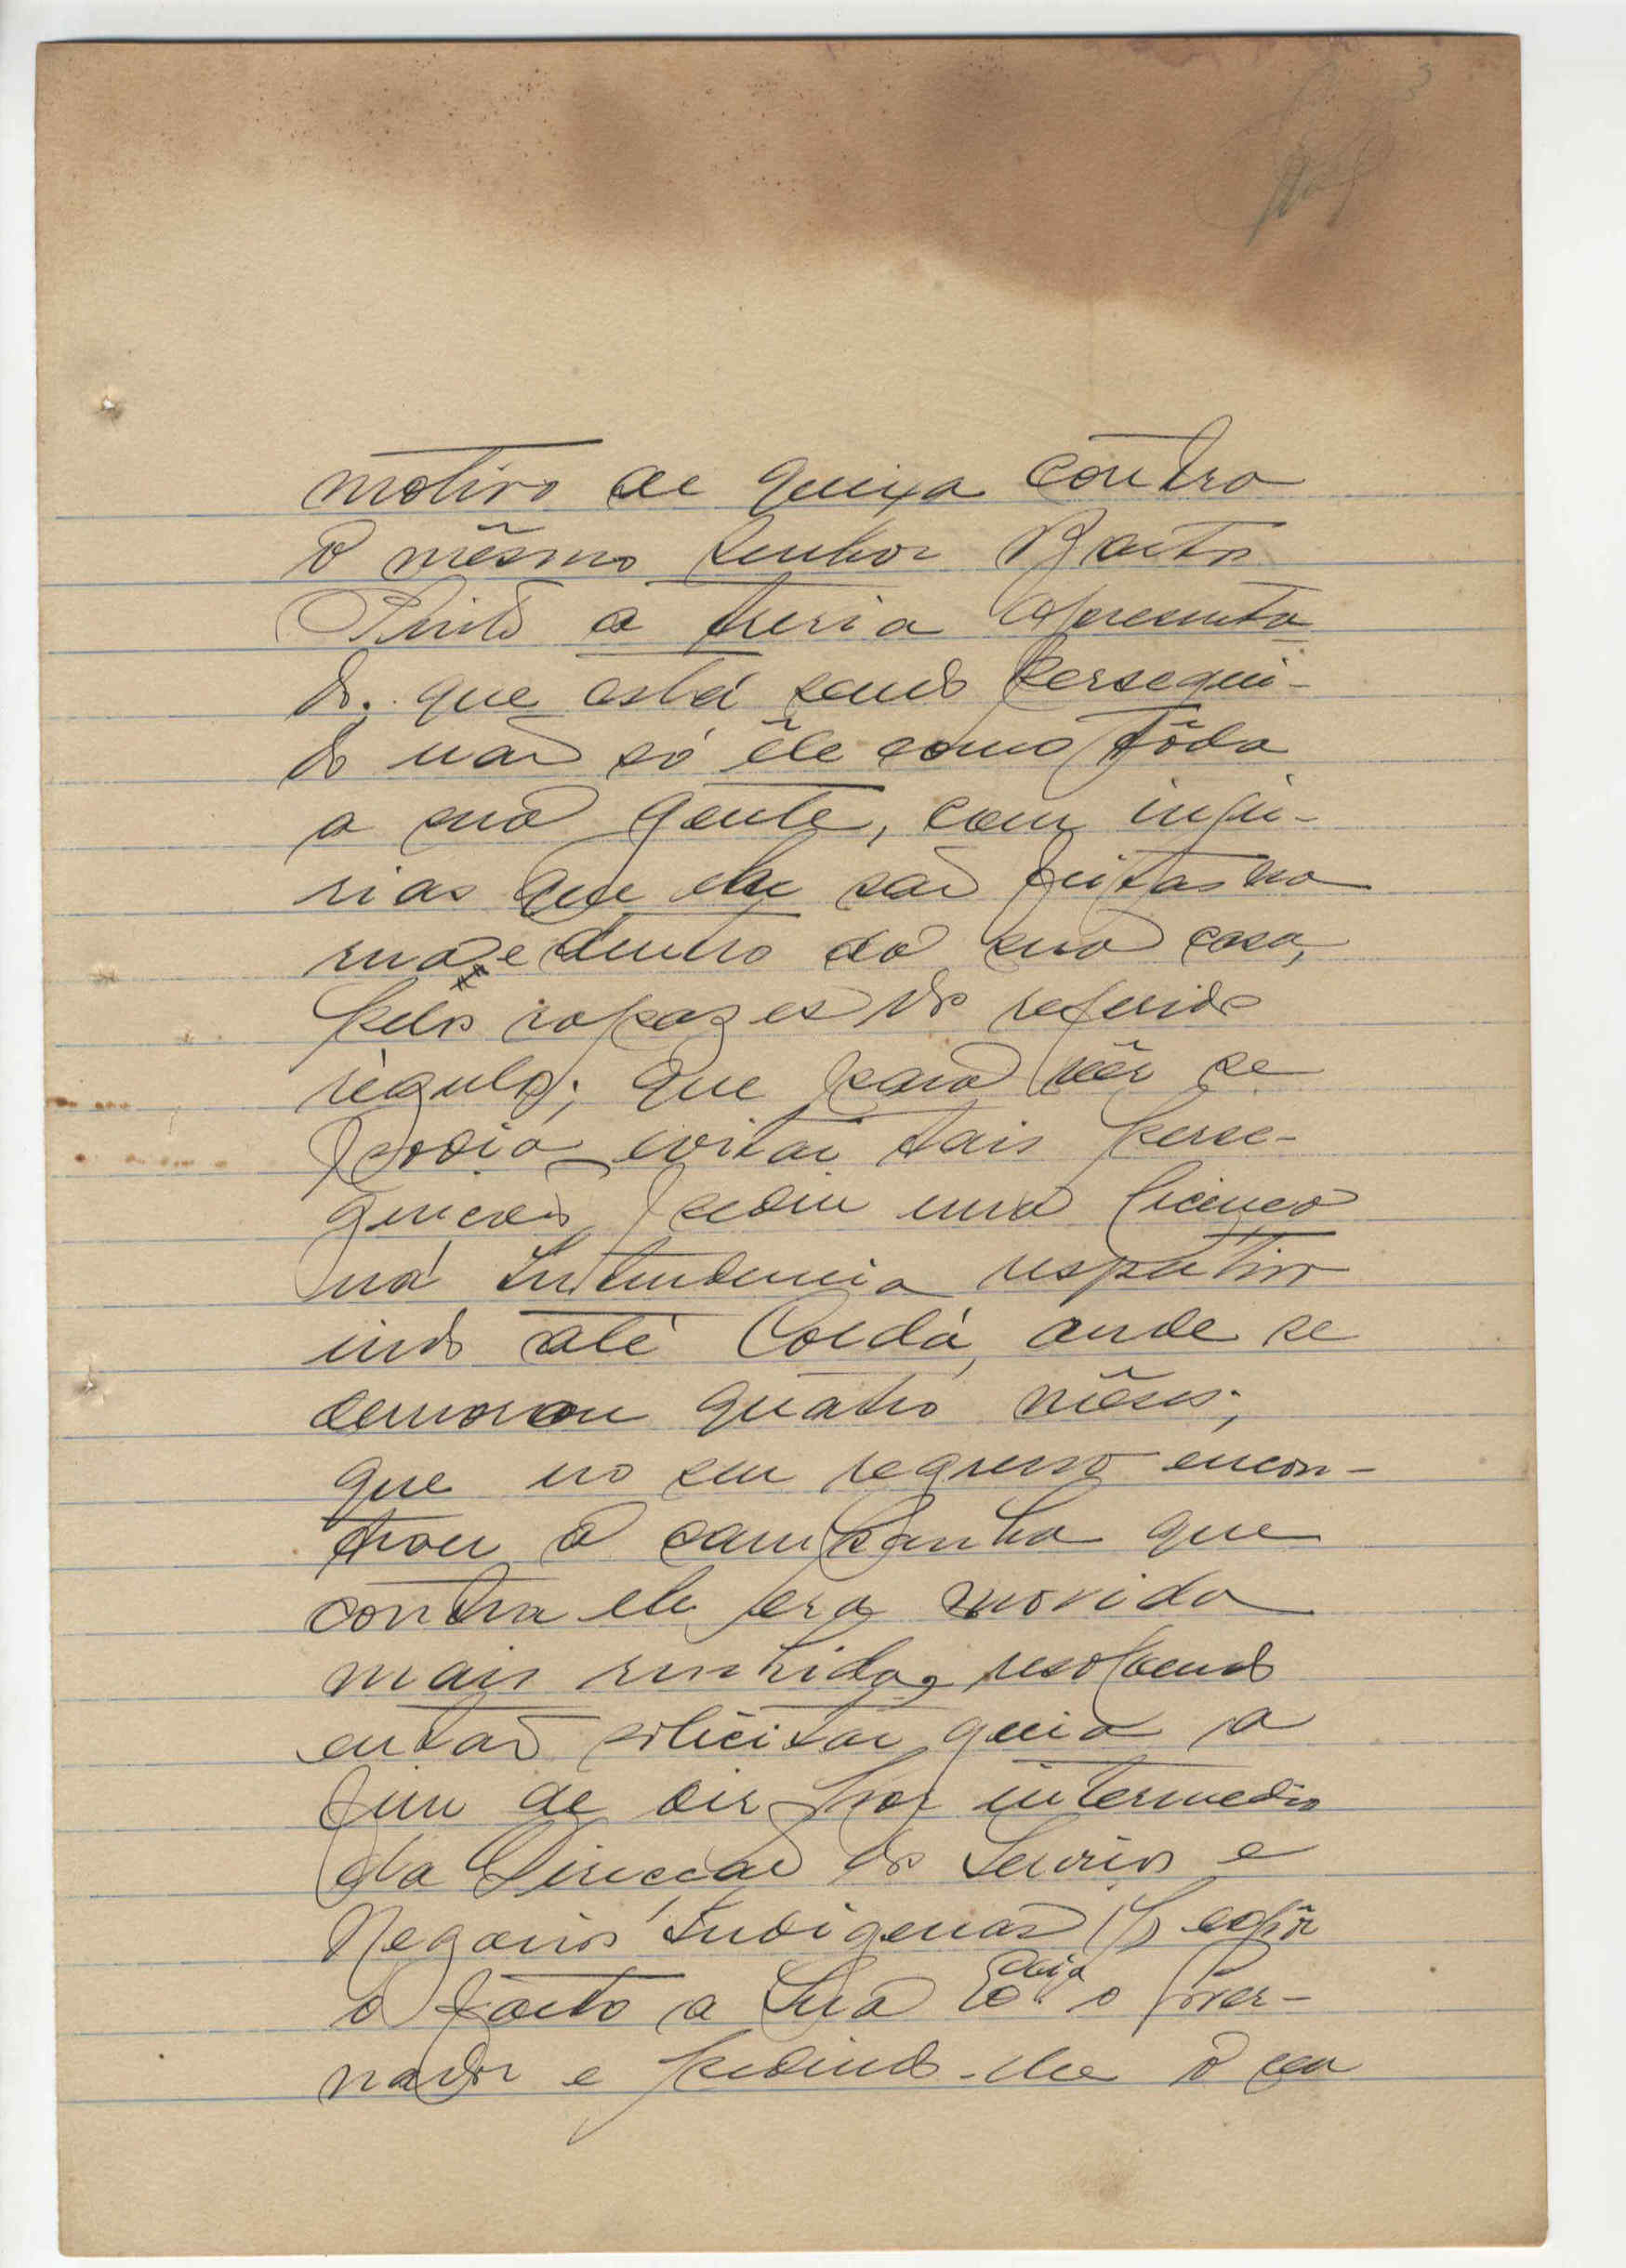 3
motivo de queixa contra
o mêsmo Senhor Bastos
Pinto a teria apresenta
do; que está sendo persegui-
do não só êle como tôda
a sua gente, com injú-
rias que lhe são feitas na
rua e dentro da sua casa,
pelos rapazes do referido
régulo; que para vêr se
podia evitar tais perse-
guicoes, pediu uma licença
na Intendencia respetiva
indo até Coldá, onde se
demorou quatro mêses;
que no seu regresso encon-
trou a campanha que
contra ele era movida
mais renhida, resolvendo
então solicitar guia a
fim de vir por intermedio
da Direccão dos Servicos e
Negocios Indigenas expôr
o facto a Sua Exª o Gover-
nador e pedindo-lhe o seu